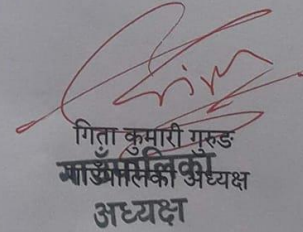 गिता कुमारी गुरुङ
गाउँपालिका अध्यक्ष
गाउँपालिका
अध्यक्ष